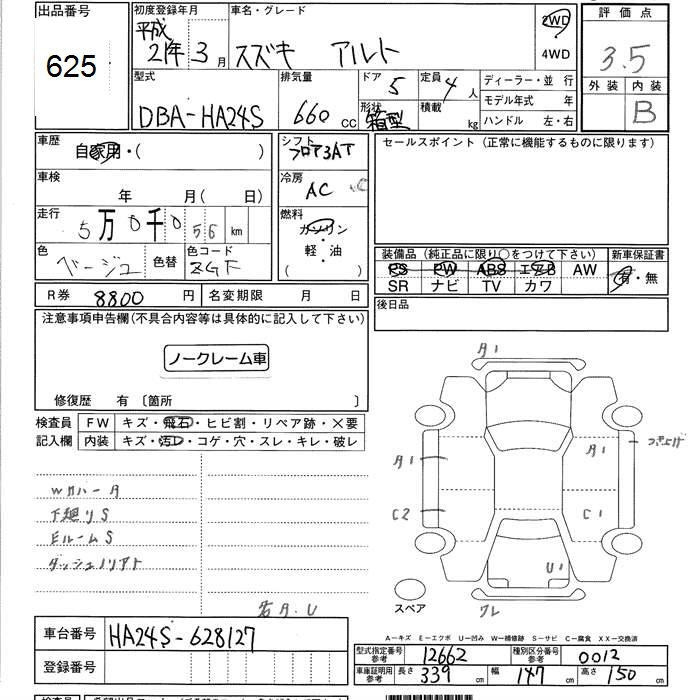 出品番号
625
初度登録年月
平成
21年3月
車名・グレード
スズキ アルト
2WD
4WD
評価点
3.5
外装 内装
B
型式
DBA-HA24S
排気量
660 CC
ドア 5
形状
箱型
定員 4人
積載 kg
ディーラー・並行
モデル年式 年
ハンドル 左・右
車歴
自家用・( )
シフト
フロア3AT
セールスポイント (正常に機能するものに限ります)
車検
年 月( 日)
冷房
AC
走行
5万0千056km
燃料
ガソリン
軽・油
( )
色
ベージュ
色替
色コード
ZGF
装備品 (純正品に限り○をつけて下さい)
新車保証書
PS PW ABS エアB AW
有・無
SR ナビ TV カワ
R券 8800円
名変期限 月 日
後日品
注意事項申告欄(不具合内容等は具体的に記入して下さい)
ノークレーム車
修復歴 有 〔箇所 〕
検査員
記入欄
FW キズ・飛石・ヒビ割・リペア跡・×要
内装 キズ・汚レ・コゲ・穴・スレ・キレ・破レ
Wカバータ
下廻りS
EルームS
ダッシュノリアト
A1
A1
A1
つき上げ
C2
C1
U1
ワレ
スペア
A-キズ E-エクボ U-凹み W-補修跡 S-サビ C-腐食 XX-交換済
車台番号
HA24S-628127
登録番号
型式指定番号
参考
12662
種別区分番号
参考
0012
車庫証明用
参考
長さ 339 cm
幅 147 cm
高さ 150 cm